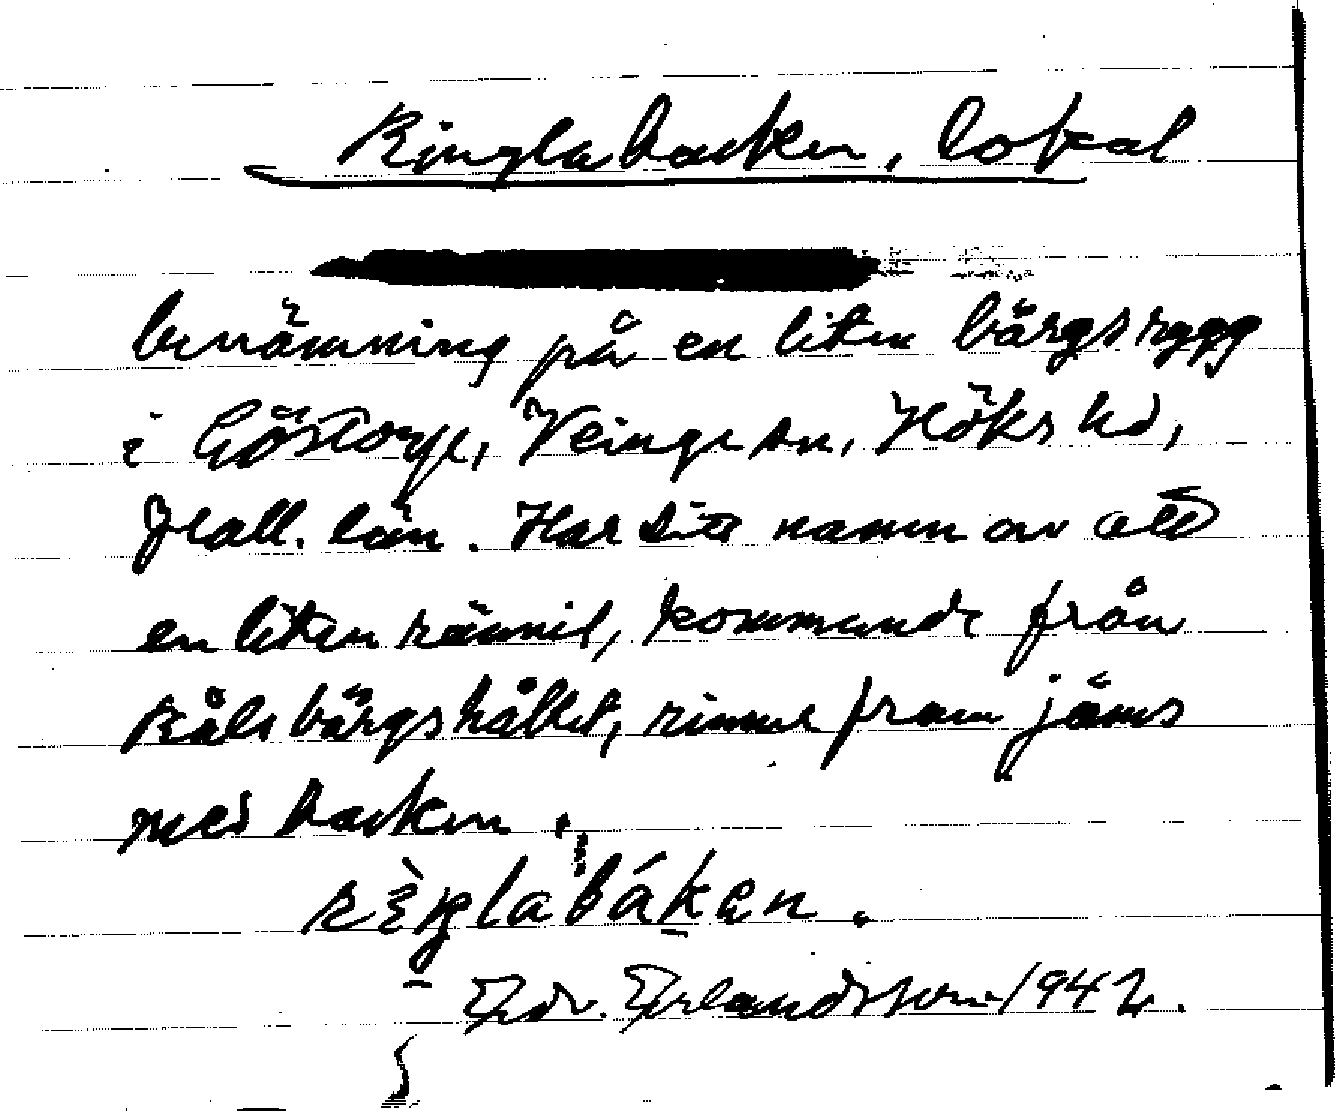 Ringlabacken, lokal
benämning på en liten bärgsrygg
i Göstorp, Veinge sn, Höks hd,
Hall. län. Har sitt namn av att
en liten rännil, kommande från
Kålsbärgshållet, rinner fram jäms
med backen.
rèŋlabákan.
Edv. Erlandsson 1942.